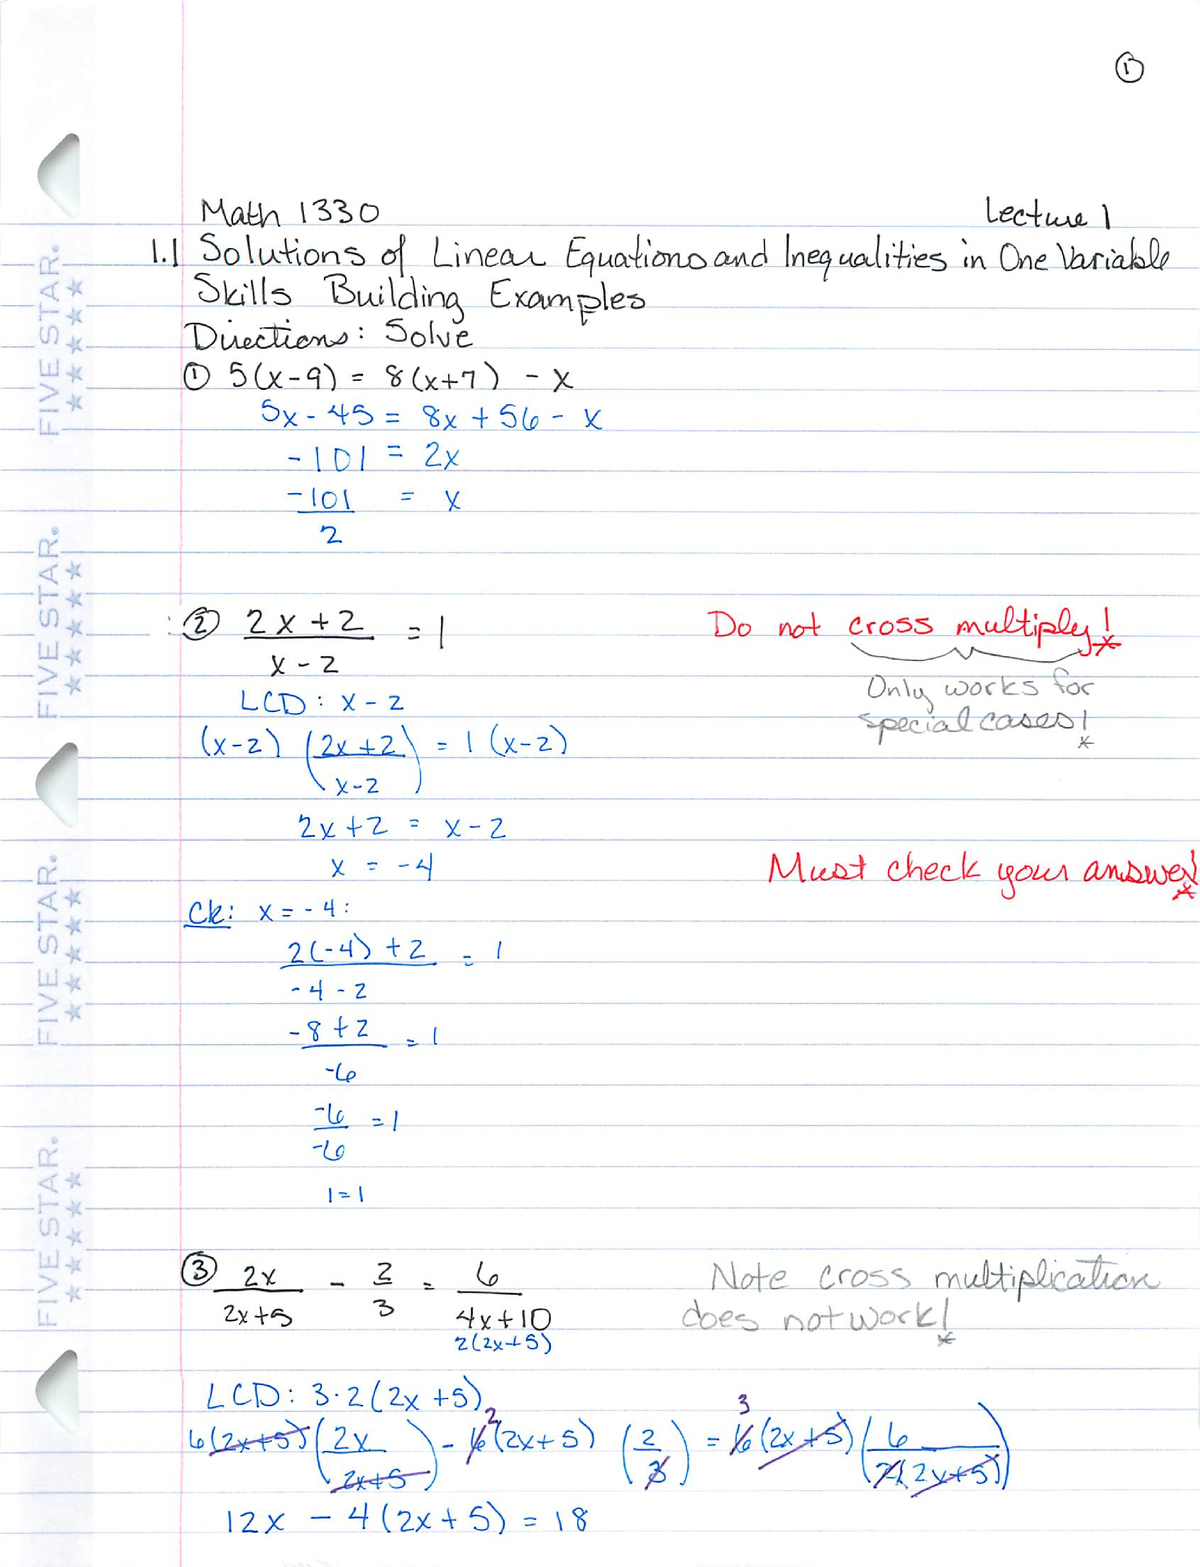 ①
Math 1330 Lecture 1
1.1 Solutions of Linear Equations and Inequalities in One Variable
Skills Building Examples
Directions: Solve
① 5(x-9) = 8(x+7) - x
5x - 45 = 8x + 56 - x
-101 = 2x
-101 = x
2
② 2x+2 = 1 Do not cross multiply!*
x-2
Only works for
LCD: x-2
special cases!*
(x-2) (2x+2) = 1 (x-2)
x-2
2x+2 = x-2
x = -4 Must check your answer!*
Ck: x = -4:
2(-4)+2 = 1
-4-2
-8+2 = 1
-6
-6 = 1
-6
1=1
③ 2x - 2 = 6 Note cross multiplication
2x+5 3 4x+10 does not work!*
2(2x+5)
LCD: 3·2(2x+5)
6(2x+5)(2x) - 6 2 (2x+5) (2) = 6 3 (2x+5) (6)
2x+5 3 2(2x+5)
12x - 4(2x+5) = 18
FIVE STAR.
FIVE STAR.
FIVE STAR.
FIVE STAR.